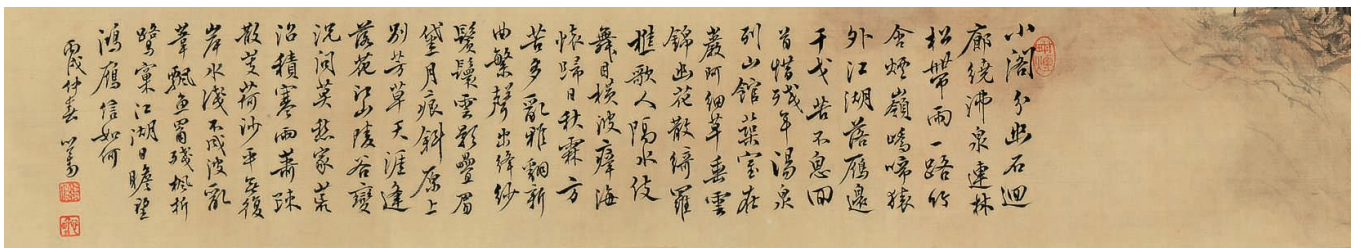 小閣分幽石迴
廊繞沸泉連林
松帶雨一路竹
含煙嶺嘯啼猿
外江湖落雁邊
干戈苦不息回
首惜殘年湯泉
列山館築室在
巖阿細草垂雲
錦幽花散綺羅
樵歌人隔水伎
舞目橫波瘴海
懷歸日秋霖方
苦多亂雅翻新
曲繁聲出絳紗
鬢鬟雲影疊眉
黛月痕斜原上
別芳草天涯逢
落花江山陵谷變
況問莫愁家荒
沼積寒雨蕭疎
散芰荷沙平無復
岸水淺不成波亂
葦飄魚罾殘楓折
鷺窠江湖日瞻望
鴻雁信如何
丙戌仲春 心畬